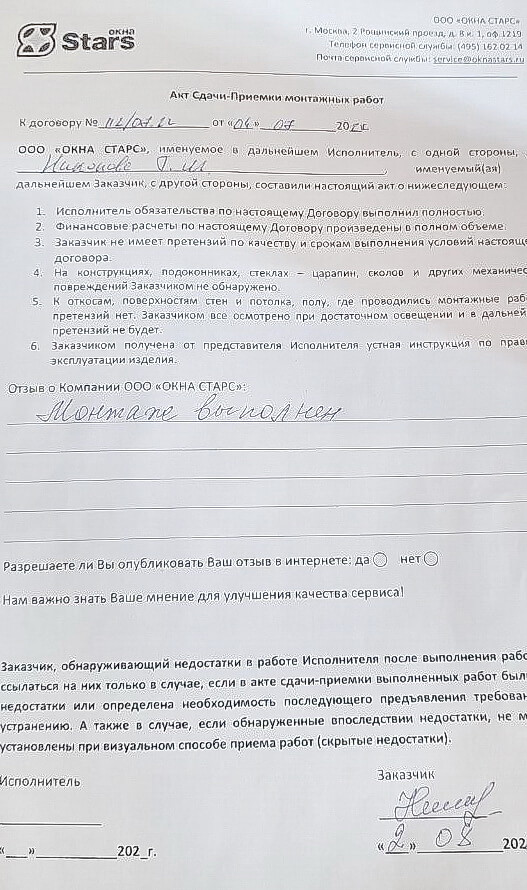 окна
Stars
ООО «ОКНА СТАРС»
г. Москва, 2 Рощинский проезд, д. 8 к. 1, оф.1219
Телефон сервисной службы: (495) 162 02 14
Почта сервисной службы: service@oknastars.ru
Акт Сдачи-Приемки монтажных работ
К договору № 112/07.22 от «04» 07 202 г.
ООО «ОКНА СТАРС», именуемое в дальнейшем Исполнитель, с одной стороны,
именуемый(ая)
дальнейшем Заказчик, с другой стороны, составили настоящий акт о нижеследующем:
1. Исполнитель обязательства по настоящему Договору выполнил полностью.
2. Финансовые расчеты по настоящему Договору произведены в полном объеме.
3. Заказчик не имеет претензий по качеству и срокам выполнения условий настояще
договора.
4. На конструкциях, подоконниках, стеклах – царапин, сколов и других механичес
повреждений Заказчиком не обнаружено.
5. К откосам, поверхностям стен и потолка, полу, где проводились монтажные раб
претензий нет. Заказчиком все осмотрено при достаточном освещении и в дальней
претензий не будет.
6. Заказчиком получена от представителя Исполнителя устная инструкция по прави
эксплуатации изделия.
Отзыв о Компании ООО «ОКНА СТАРС»:
Монтаже выполнен
Разрешаете ли Вы опубликовать Ваш отзыв в интернете: да нет
Нам важно знать Ваше мнение для улучшения качества сервиса!
Заказчик, обнаруживающий недостатки в работе Исполнителя после выполнения рабо
ссылаться на них только в случае, если в акте сдачи-приемки выполненных работ был
недостатки или определена необходимость последующего предъявления требован
устранению. А также в случае, если обнаруженные впоследствии недостатки, не м
установлены при визуальном способе приема работ (скрытые недостатки).
Исполнитель
Заказчик
«__»__________202_г.
«2» 08 202